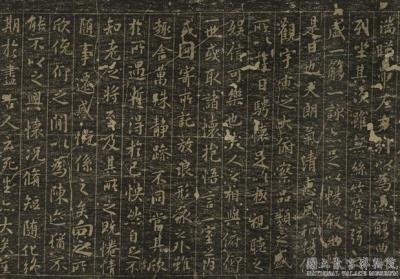 湍暎帶左右引以為流觴曲
列坐其次雖無絲竹管弦
盛一觴一詠亦足以暢敘
是日也天朗氣清惠風和
觀宇宙之大俯察品類之
所以遊目騁懷足以極視聽之
娛信可樂也夫人之相與俯
一世或取諸懷抱悟言一室之內
或因寄所託放浪形骸之外雖
趣舍萬殊靜躁不同當其欣
於所遇蹔得於己怏然自足
知老之將至及其所之既惓
隨事遷感慨係之矣向之
欣俛仰之閒以為陳迹猶
能不以之興懷況脩短隨化
期於盡古人云死生亦大矣
國立故宮博物院